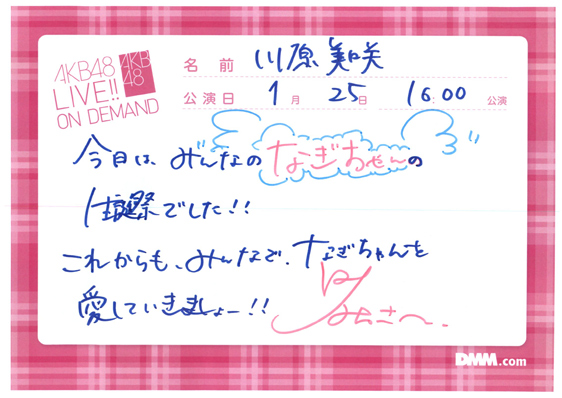 AKB48
LIVE!!
ON DEMAND
AKB
48
名前 川原美咲
公演日 1月 25日 16:00 公演
今日は、みんなのなぎちゃんの
生誕祭でした!!
これからも、みんなで、なぎちゃんを
愛していきましょー!!
みさ
DMM.com